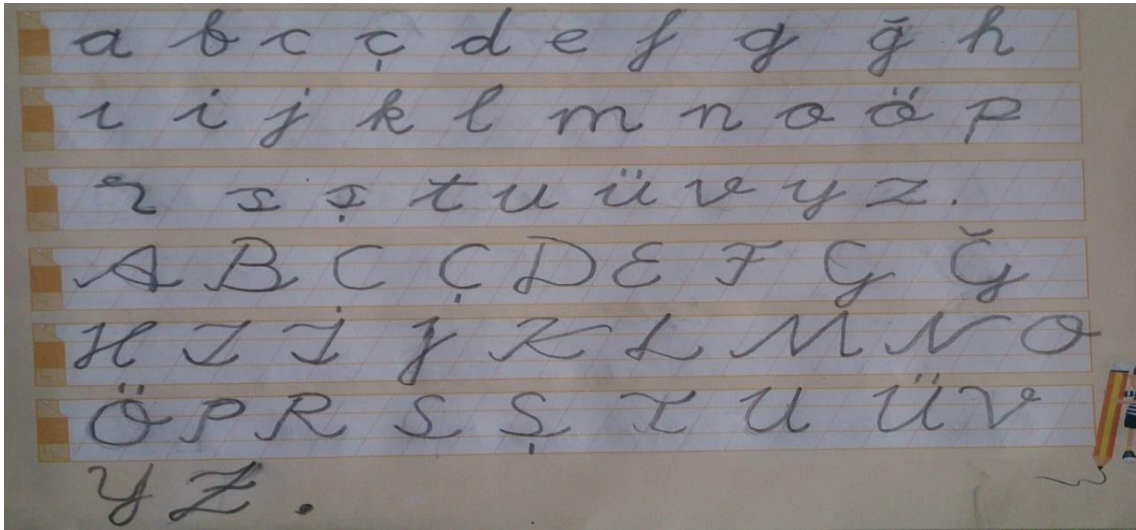 a b c ç d e f g ğ h
ı i j k l m n o ö p
r s ş t u ü v y z .
A B C Ç D E F G Ğ
H I İ J K L M N O
Ö P R S Ş T U Ü V
Y Z .